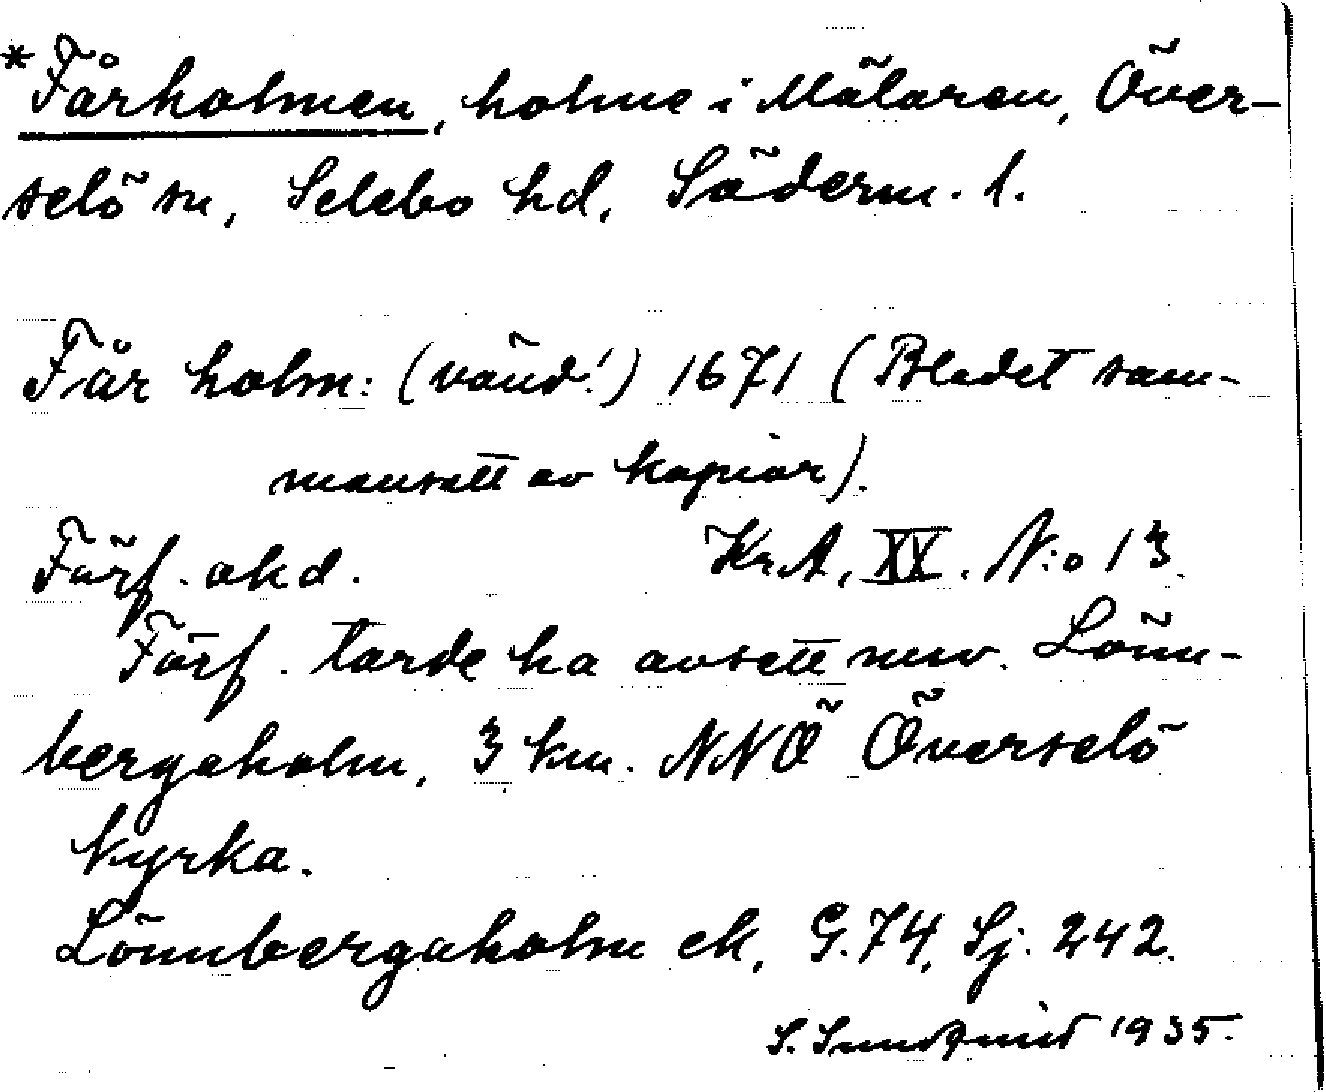 *Fårholmen, holme i Mälaren, Över-
selö sn, Selebo hd, Söderm. l.
Får holm: (vänd!) 1671 (Bladet sam-
mansatt av kopior).
Förf. okd. Kr.A, XX. N:o 13
Förf. torde ha avsett nuv. Lönn-
bergaholm, 3 km. NNÖ Överselö
kyrka.
Lönnbergaholm ek, G. 74, Sj. 242.
S. Sundquist 1935.